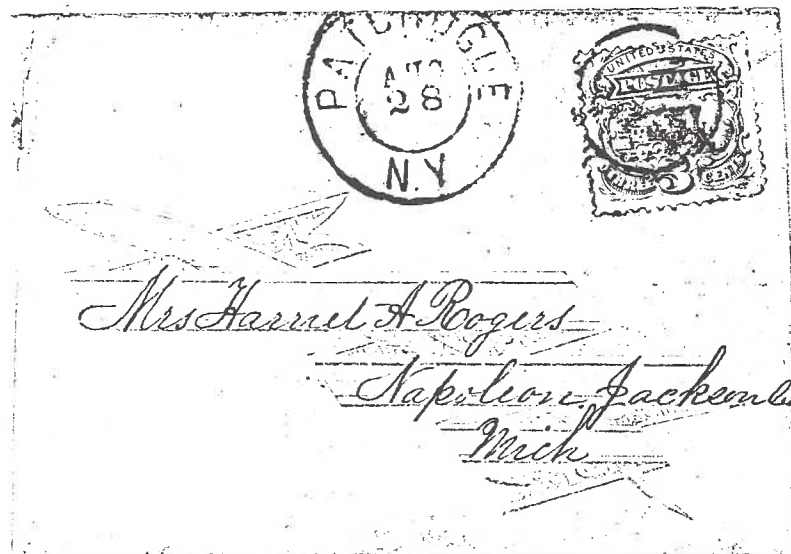 PATCHOGUE
AUG
28
N.Y
UNITED STATES
POSTAGE
Mrs Harriet A Rogers
Napoleon. Jackson Co
Mich